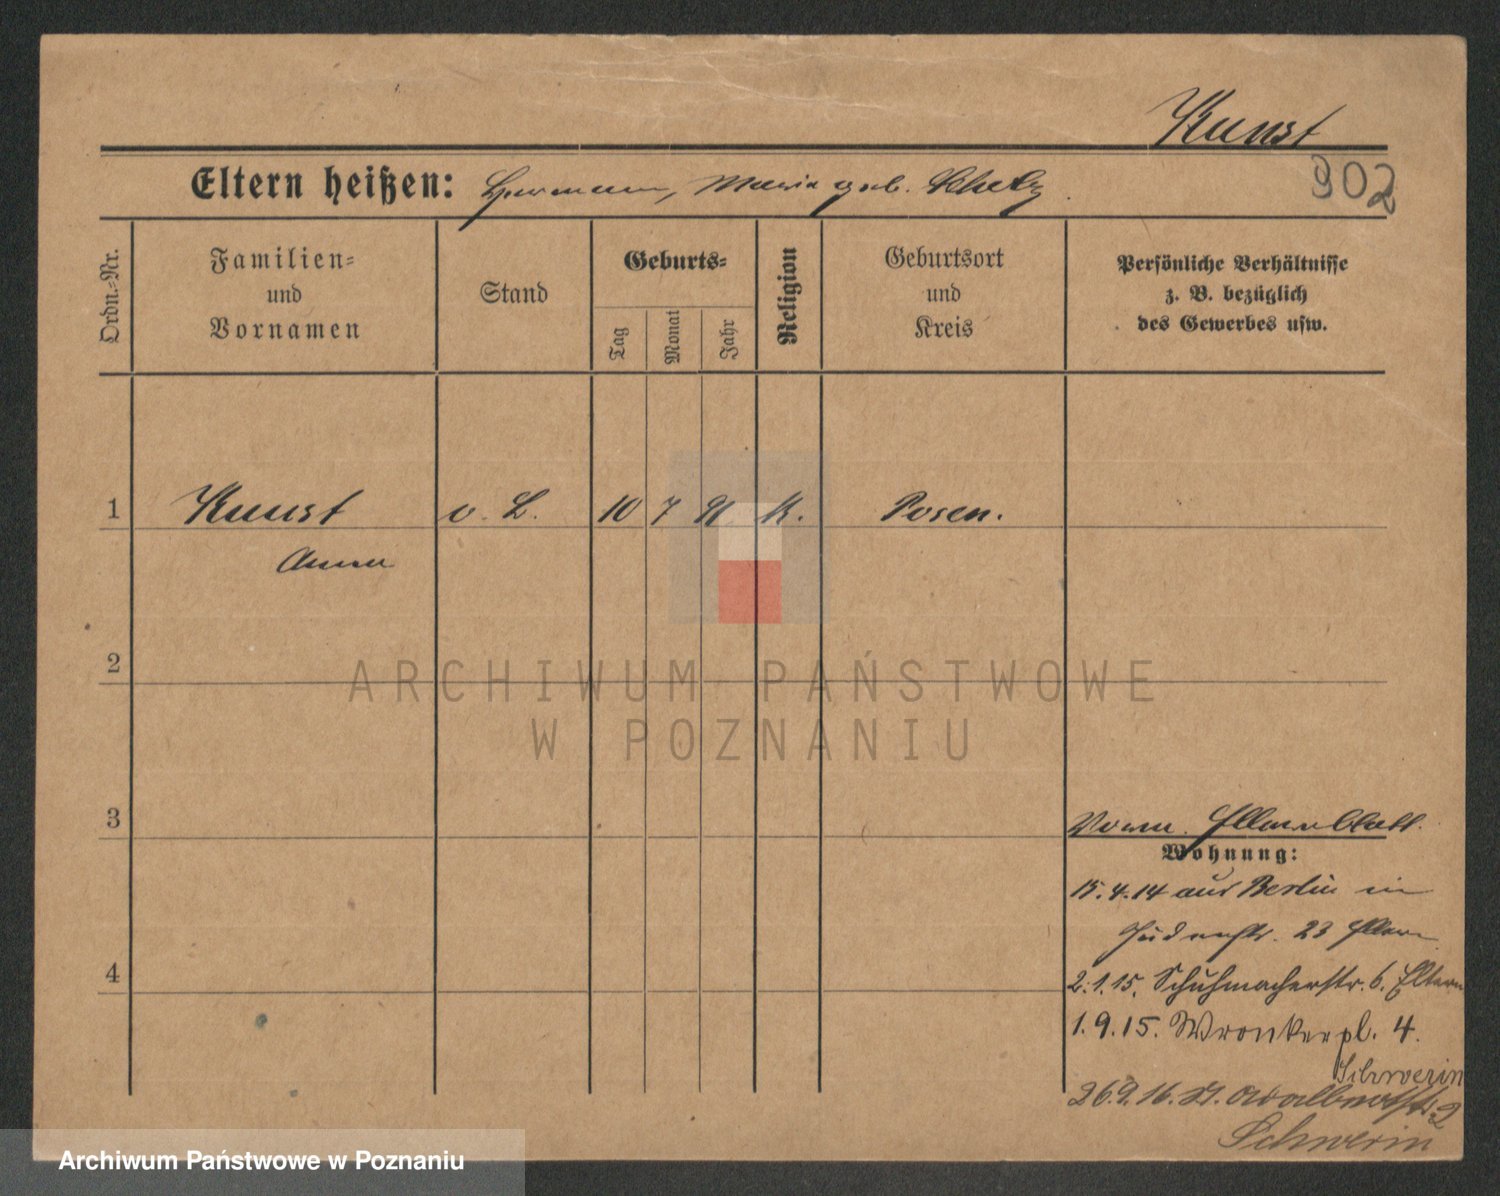 Kunst
902
Eltern heißen: Hermann, Maria geb. Scholz
Ordn.-Nr.
Familien-
und
Vornamen
Stand
Geburts-
Tag
Monat
Jahr
Religion
Geburtsort
und
Kreis
Persönliche Verhältnisse
z. B. bezüglich
des Gewerbes usw.
1 Kunst o. L. 10 7 91 k. Posen.
Anna
2
ARCHIWUM PAŃSTWOWE
W POZNANIU
3
Vorm. Elternblatt.
Wohnung:
15.4.14 aus Berlin in
Judenstr. 23 Eltern
4
2.1.15. Schuhmacherstr. 6. Eltern
1.9.15. Wronkerpl. 4.
Schwerin
26.9.16. St. Adalbertstr. 2
Schwerin
Archiwum Państwowe w Poznaniu